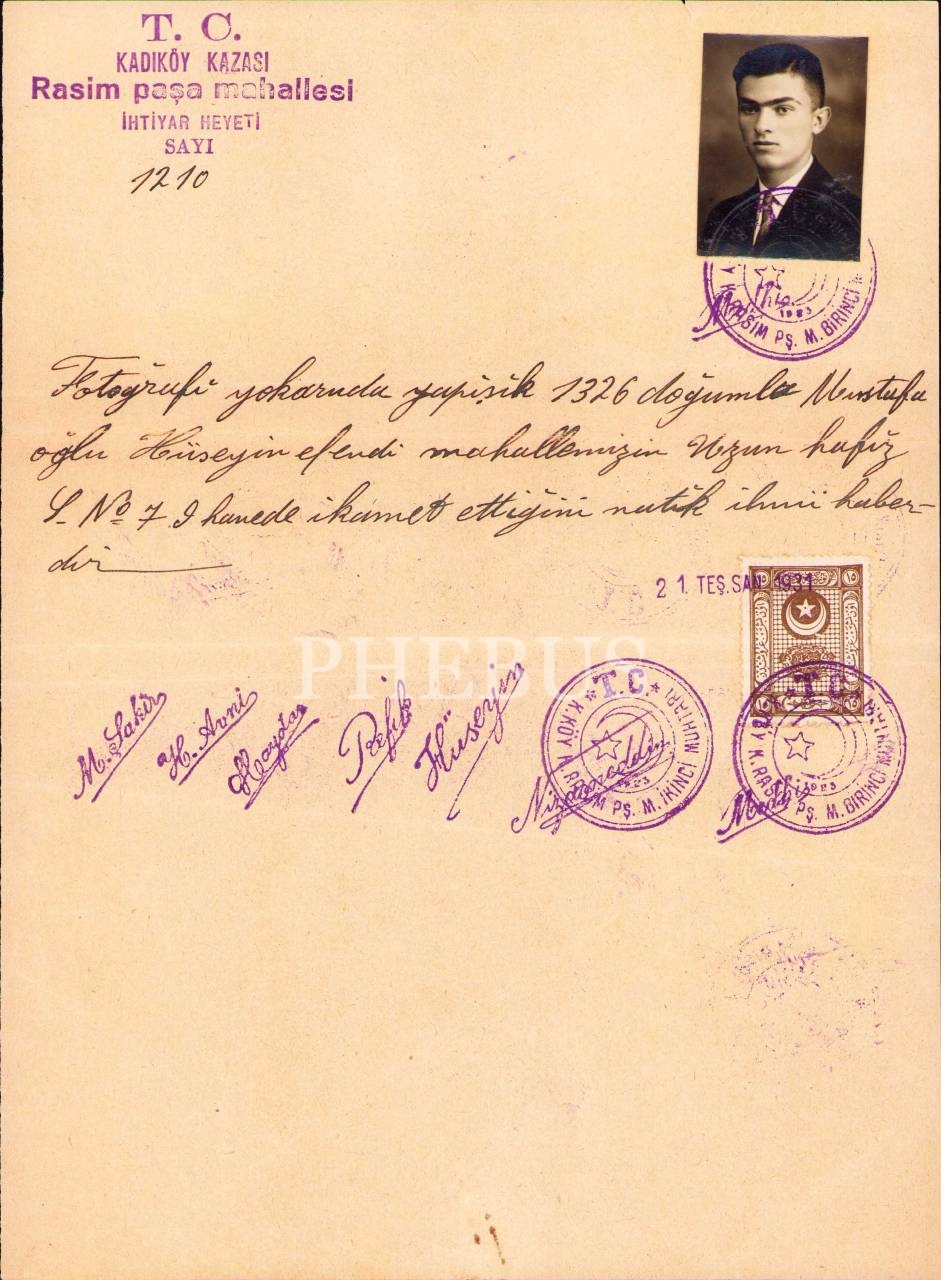 T. C.
KADIKÖY KAZASI
Rasim paşa mahallesi
İHTİYAR HEYETİ
SAYI
1210
T. C.
K. RASİM PŞ. M. BİRİNCİ
1923
Fotoğrafi yokaruda yapişik 1326 doğumlu Mustafa
oğlu Hüseyin efendi mahallemizin Uzun hafız
S. No 7 9 hanede ikamet ettiğini natik ilmü haber-
dir
21 TEŞ.SANİ 1931
PHEBUS
M. Şakir
H. Avni
Haydar
Refik
Hüseyin
T. C.
K.KÖY K. RASİM PŞ. M. İKİNCİ MUHTARI
1923
Nizameddin
T. C.
K. RASİM PŞ. M. BİRİNCİ MUHTARI
1923